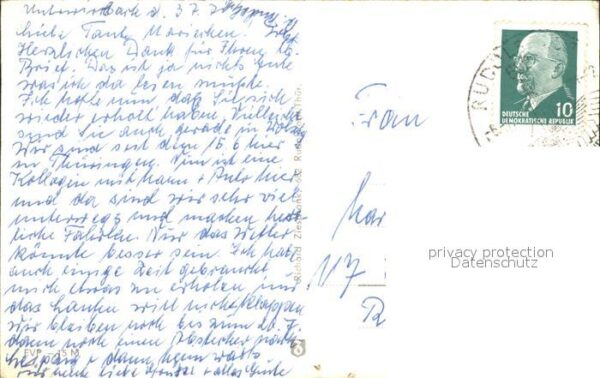 Unterwirbach d. 3.7.
Liebe Tante Mariechen!
Herzlichen Dank für Ihren lb.
Brief. Das ist ja nichts gute
was ich da lesen mußte.
Ich hoffe nun, daß Sie sich
wieder erholt haben. Vielleicht
sind Sie auch gerade in
Wir sind seit dem 15.6 hier
in Thüringen. Nun ist eine
Kollegin mit Mann + Auto hier
und da sind wir sehr viel
unterwegs und machen herr
liche Fahrten. Nur das Wetter
könnte besser sein. Ich hab
auch einige Zeit gebraucht
mich etwas zu erholen nur
das Laufen will nicht klappen
Wir bleiben noch bis zum 20.7.
dann noch einen Abstecher nach
Leipzig + dann
liebe Grüße + alles Gute
Frau
Mar
117
EVP
Richard Zieschank
DEUTSCHE
DEMOKRATISCHE REPUBLIK
10
RUDOL
privacy protection
Datenschutz